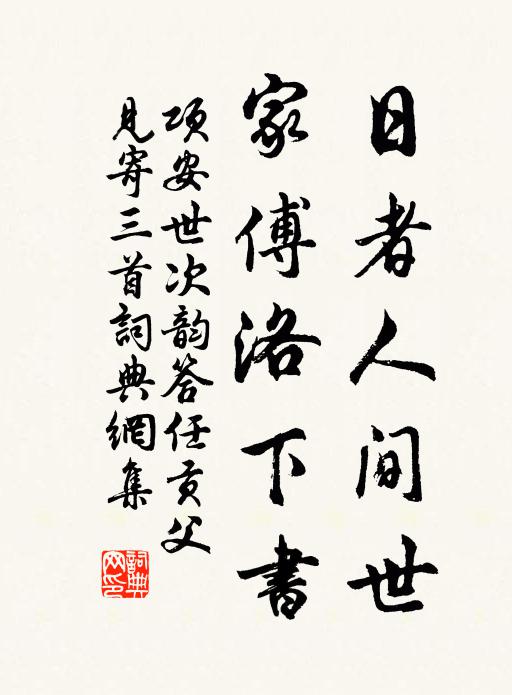 日者人间世
家傅洛下書
项安世次韵答任贡父
見寄三首詞典網集
詞典网印